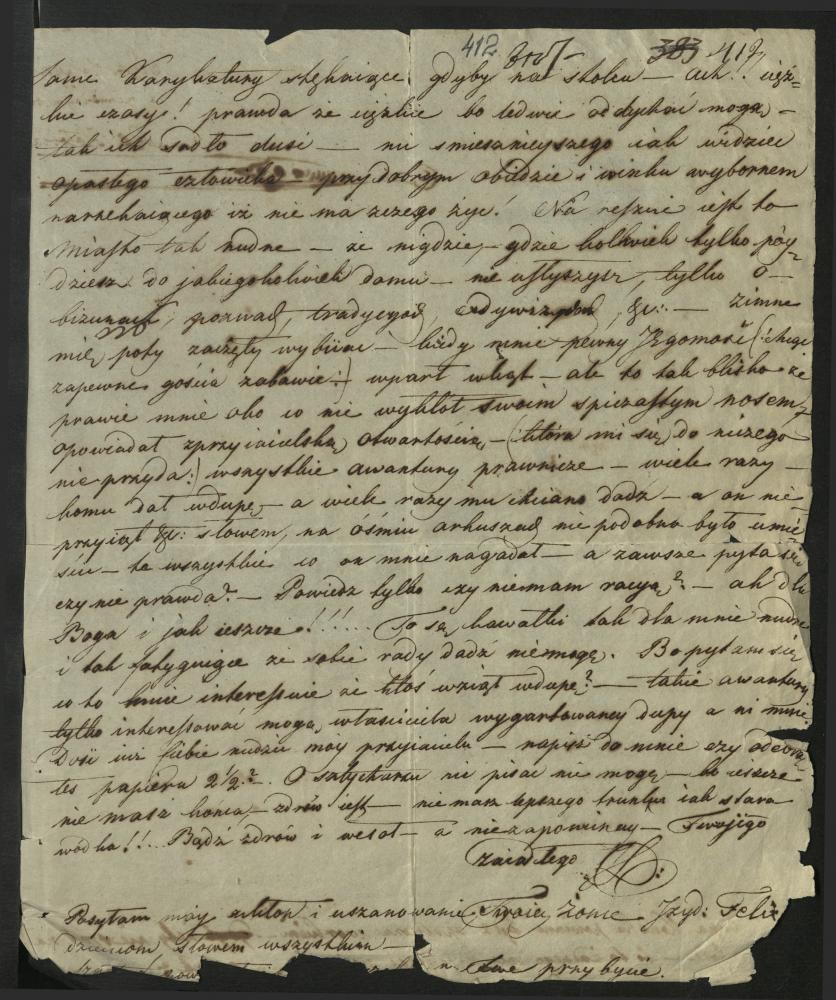 412 383 417
same Karykatury stękaiące gdyby na stolcu — ach! cięż=
kie czasy! prawda że ciężkie bo ledwie oddychać mogą, —
tak ich sadło dusi — nic smiesznieyszego iak widzieć
opasłego człowieka — przy dobrym obiedzie i winku wybornem
narzekaiącego iż nie ma zczego żyć! Na reszcie iest to
Miasto tak nudne — że nigdzie, — gdzie kolwiek tylko póy=
dziesz do jakiegokolwiek domu — nie usłyszysz, tylko o —
, pozwach, tradycyach, &c: — zimne
mię poty zaczęły wybiiac — kiedy mnie pewny Jegomość (: chcąc
zapewne gościa zabawić :) wparł w kąt — ale to tak blisko że
prawie mnie oko co nie wykłół swoim spiczastym nosem,
opowiadał zprzyiacielską otwartością, — (: która mi się do niczego
nie przyda :) wszystkie awantury prawnicze — wiele razy —
komu dał wdupę, — a wiele razy mu chciano dadź — a on nie
przyiął &c: słowem, na ośmiu arkuszach nie podobna było umie=
ścić — te wszystkie co on mnie nagadał — a zawsze pyta się
czy nie prawda? — Powiedz tylko czy niemam racyą? — ah dla
Boga i jak ieszcze!!!... To są kawałki tak dla mnie nudne
i tak fatyguiące że sobie rady dadź niemogę. Bo pytam się
co to mnie interessuie że ktoś wziął wdupę? — takie awantury
tylko interessować mogą, właściciela wygarbowaney dupy a ni mnie
Dość iuż Ciebie nudzić moy przyiacielu — napisz do mnie czy odebra=
łeś papieru 2 1/2.? O nic pisac nie mogę — bo ieszcze
nie masz konca, — zdrów iest — nie masz lepszego trunku iak stara
wodka!!.. Bądź zdrów i wesoł — a niezapominay — Twojego
zaiadłego
Posyłam moy ukłon i uszanowanie Twoiey Żonie Jzyd: Felix
dzieciom słowem wszystkim —
przybycie.